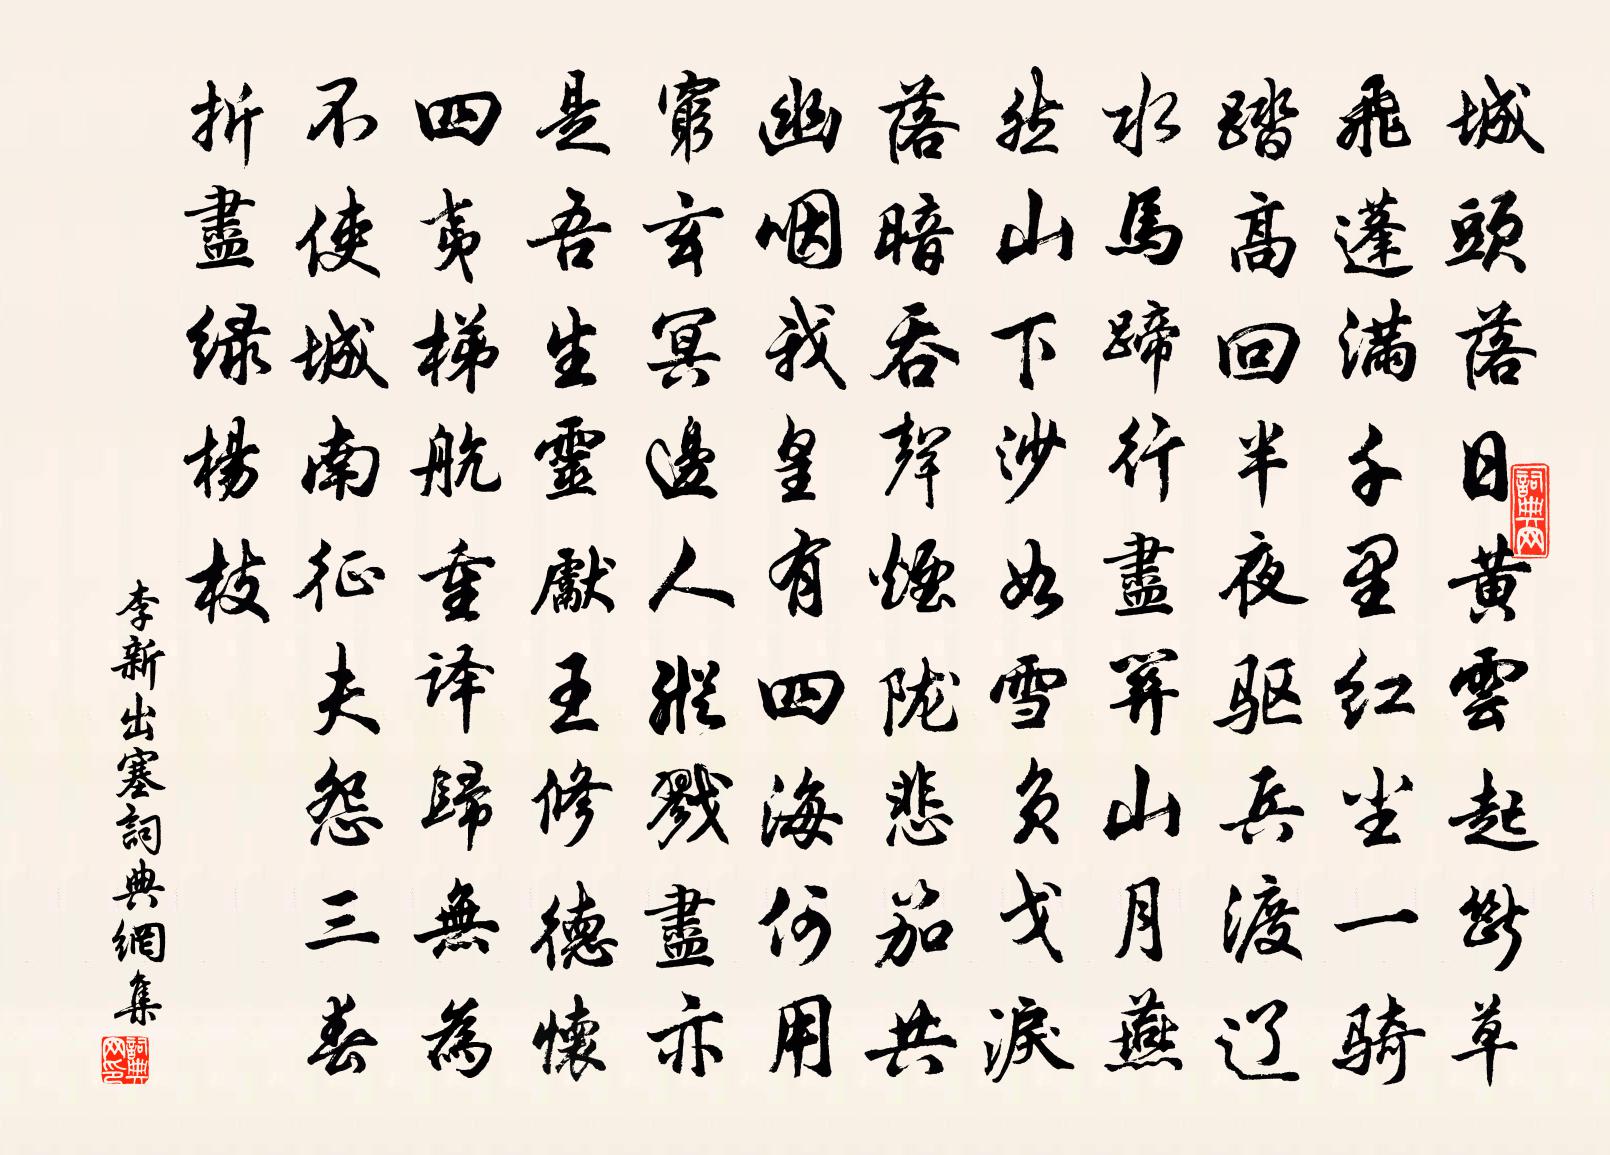 城頭落日黄雲起斷草
飛蓬滿千里红尘一骑
踏高回半夜驱兵渡辽
水馬蹄行盡關山月燕
然山下沙如雪负戈淚
落暗吞聲煙陇悲笳共
幽咽我皇有四海何用
窮玄冥邊人縱戮盡亦
是吾生靈獻王修德懷
四夷梯航重译歸無為
不使城南征夫怨三春
折盡绿楊枝
李新出塞詞典網集
詞典网
詞典网印